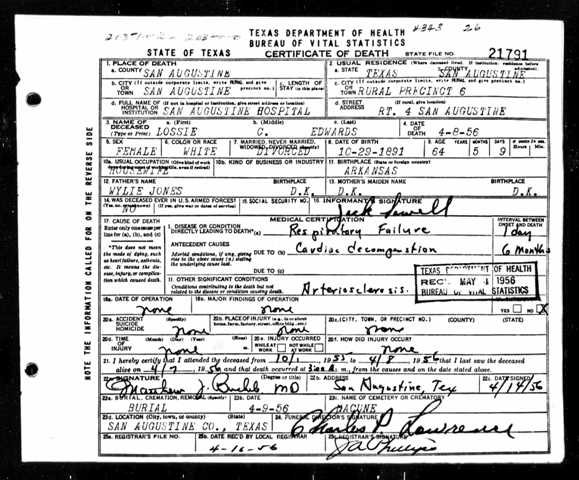 TEXAS DEPARTMENT OF HEALTH
BUREAU OF VITAL STATISTICS
STATE OF TEXAS CERTIFICATE OF DEATH STATE FILE NO. 21791
1. PLACE OF DEATH 2. USUAL RESIDENCE
a. COUNTY SAN AUGUSTINE a. STATE TEXAS SAN AUGUSTINE
SAN AUGUSTINE c. LENGTH OF STAY RURAL PRECINCT 6
d. FULL NAME OF HOSPITAL OR INSTITUTION SAN AUGUSTINE HOSPITAL d. STREET ADDRESS RT. 4 SAN AUGUSTINE
3. NAME OF DECEASED a. (First) b. (Middle) c. (Last) 4. DATE OF DEATH
(Type or Print) LOSSIE C. EDWARDS 4-8-56
5. SEX 6. COLOR OR RACE 7. MARRIED, NEVER MARRIED, WIDOWED, DIVORCED 8. DATE OF BIRTH 9. AGE YEARS MONTHS DAYS
FEMALE WHITE DIVORCED 10-29-1891 64 5 9
10a. USUAL OCCUPATION 10b. KIND OF BUSINESS OR INDUSTRY 11. BIRTHPLACE
HOUSEWIFE ARKANSAS
12. FATHER'S NAME BIRTHPLACE 13. MOTHER'S MAIDEN NAME BIRTHPLACE
WYLIE JONES D.K. D.K. D.K.
14. WAS DECEASED EVER IN U.S. ARMED FORCES? 15. SOCIAL SECURITY NO. 16. INFORMANT'S SIGNATURE
NO Jack
17. CAUSE OF DEATH MEDICAL CERTIFICATION INTERVAL BETWEEN ONSET AND DEATH
I. DISEASE OR CONDITION DIRECTLY LEADING TO DEATH (a) Respiratory Failure 1 day
ANTECEDENT CAUSES DUE TO (b) Cardiac decompensation 6 months
DUE TO (c)
TEXAS DEPARTMENT OF HEALTH
REC'D MAY 4 1956
BUREAU OF VITAL STATISTICS
II. OTHER SIGNIFICANT CONDITIONS Arteriosclerosis.
18a. DATE OF OPERATION 18b. MAJOR FINDINGS OF OPERATION YES NO X
none none
20a. ACCIDENT SUICIDE HOMICIDE none 20b. PLACE OF INJURY none 20c. (CITY, TOWN, OR PRECINCT NO.) (COUNTY) (STATE) none
20d. TIME OF INJURY none 20e. INJURY OCCURRED WHILE AT WORK NOT WHILE AT WORK 20f. HOW DID INJURY OCCUR? none
21. I hereby certify that I attended the deceased from 10/1 1955 to 4/8 1956 that I last saw the deceased
alive on 4/7 1956 and that death occurred at m., from the causes and on the date stated above.
22a. SIGNATURE (Degree or title) 22b. ADDRESS 22c. DATE SIGNED
Matthew J. MD San Augustine, Tex 4/14/56
23a. BURIAL, CREMATION, REMOVAL 23b. DATE 23c. NAME OF CEMETERY OR CREMATORY
BURIAL 4-9-56 MACUNE
23d. LOCATION 24. FUNERAL DIRECTOR'S SIGNATURE
SAN AUGUSTINE CO., TEXAS Charles P Lawrence
25a. REGISTRAR'S FILE NO. 25b. DATE REC'D BY LOCAL REGISTRAR 25c. REGISTRAR'S SIGNATURE
4-16-56 JA Phillips
NOTE THE INFORMATION CALLED FOR ON THE REVERSE SIDE